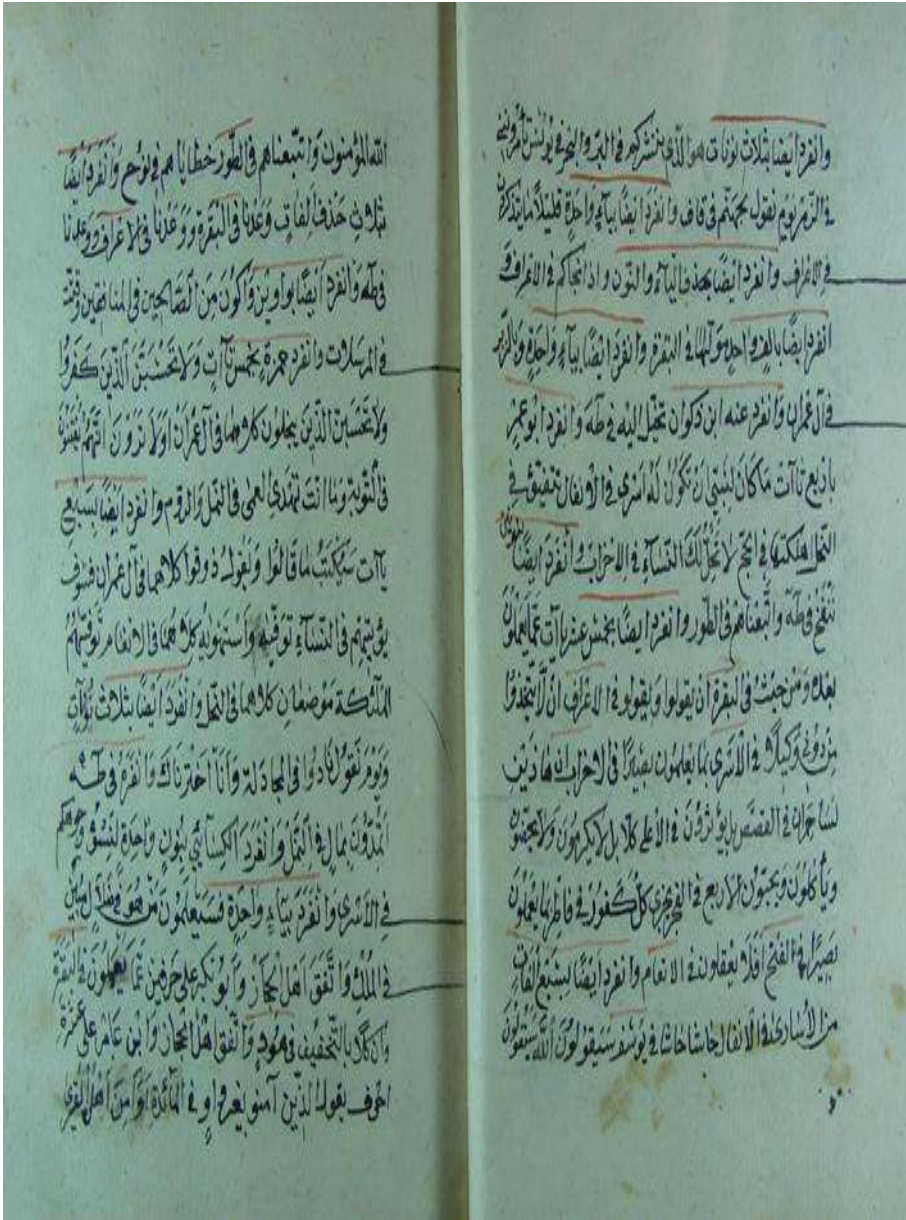 وانفرد ايضا بثلاث نونات هو الذي ينشركم في البر والبحر في يونس تأمروني
في الزمر يوم نقول لجهنم في قاف وانفرد ايضا بياء واحدة قليلا ما يتذكرون
في الاعراف وانفرد ايضا بحذف الياء والنون واذ انجاكم في الاعراف و
انفرد ايضا بالف واحدة مولاها في البقرة وانفرد ايضا بباء واحدة وبالزبر
في آل عمران وانفرد عنه ابن ذكوان تخيل اليه في طه وانفرد ابو عمرو
باربع تاآت ما كان لنبي ان تكون له اسرى في الانفال في
النمل اهلكتها في الحج لا تحل لك النساء في الاحزاب وانفرد ايضا بنونين
ننفخ في طه واتبعناهم في الطور وانفرد ايضا بخمس عشر ياآت عما يعملون
بعده ومن حيث في البقرة ان يقولوا ويقولوا في الاعراف ان لا يتخذوا
من دوني وكيلا في الاسرى بما يعملون بصيرا في الاحزاب
في القصص بل يؤثرون في الاعلى كلا بل لا يكرمون ولا يحضون
ويأكلون ويحبون الاربع في الفجر يجزي كل كفور في فاطر بما يعملون
بصيرا في الفتح افلا يعقلون في الانعام وانفرد ايضا بسبع الفات
من الأسارى في الانفال حاشا حاشا في يوسف سيقولون الله سيقولون
الله المؤمنون واتبعناهم في الطور خطاياهم في نوح وانفرد ايضا
بثلاث حذف الفات وعدنا في البقرة ووعدنا في الاعراف ووعدنا
في طه وانفرد ايضا بواوين واكون من الصالحين في المنافقين وقتت
في المرسلات وانفرد حمزة بخمس تاآت ولا تحسبن الذين كفروا
ولا تحسبن الذين يبخلون كلاهما في آل عمران اولا ترون انهم يفتنون
في التوبة وما انت تهدي العمي في النمل والروم وانفرد ايضا بسبع
ياآت سيكتب ما قالوا ويقول ذوقوا كلاهما في آل عمران فسوف
يؤتيهم في النساء توفيه واستهويه كلاهما في الانعام توفيهم
الملئكة موضعان كلاهما في النحل وانفرد ايضا بثلاث نونات
ويوم نقول نادوا في المجادلة وانا اخترناك وانفرد في طه
اتمدون بمال في النمل وانفرد الكسائي بنون واحدة لنسوء وجوهكم
في الاسرى وانفرد بياء واحدة فسيعلمون من هو في ضلال مبين
في الملك واتفق اهل الحجاز وابو بكر على حرفين عما يعملون في البقرة
وان كلا بالتخفيف في هود واتفق اهل الحجاز وابن عامر على عشرة
احرف يقول الذين آمنوا بغير واو في المائدة أوأمن اهل القرى